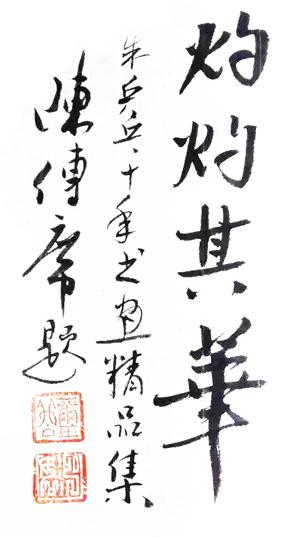 灼灼其華
朱兵兵十年书画精品集
陳傳席题